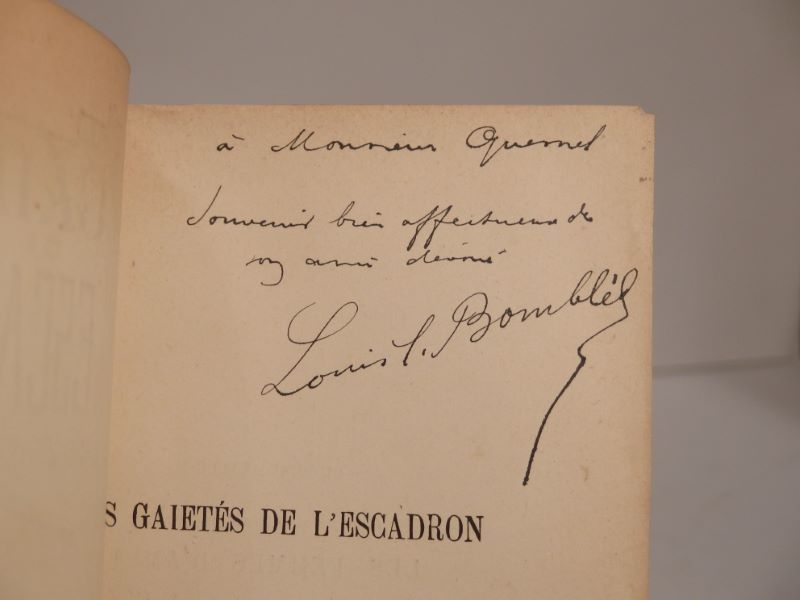 à Monsieur Quesnel
Souvenir bien affectueux de
son ami dévoué
Louis C. Bombléd
S GAIETÉS DE L'ESCADRON